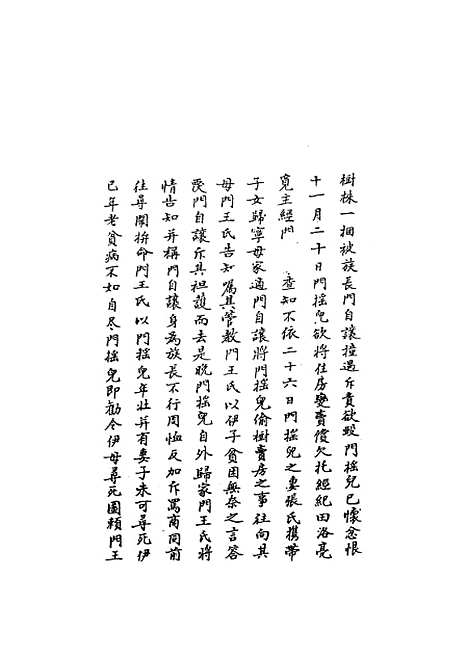 樹株一捆被族長門自讓撞遇斥責欲毆門搖兒已懷忿恨
十一月二十日門搖兒欲將住房變賣償欠托經紀田洛亮
覓主經門 查知不依二十六日門搖兒之妻張氏携帶
子女歸寧母家適門自讓將門搖兒偷樹賣房之事往向其
母門王氏告知囑其管教門王氏以伊子貧困無奈之言答
覆門自讓斥其袒護而去是晚門搖兒自外歸家門王氏將
情告知并稱門自讓身為族長不行周恤反加斥罵商同前
往尋鬧拚命門王氏以門搖兒年壯并有妻子未可尋死伊
已年老貧病不如自尽門搖兒即勸令伊母尋死圖賴門王